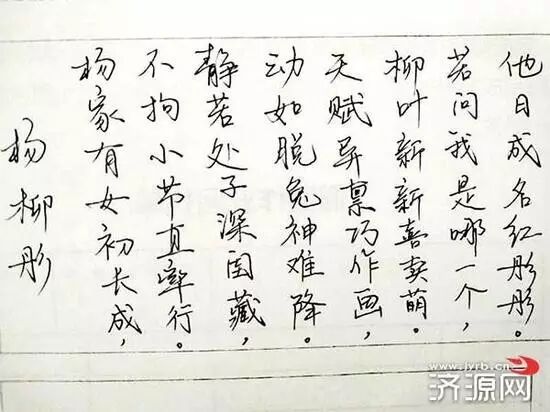 杨柳彤
杨家有女初长成，
不拘小节直率行。
静若处子深闺藏，
动如脱兔神难降。
天赋异禀巧作画，
柳叶新新喜卖萌。
若问我是哪一个，
他日成名红彤彤。
www.jyrb.cn
济源网